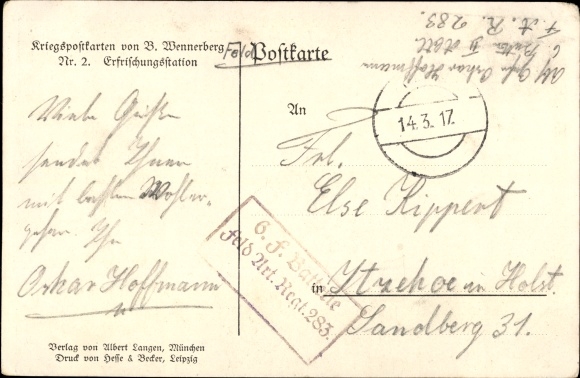 Kriegspostkarten von B. Wennerberg
Nr. 2. Erfrischungsstation
Feld Postkarte
Oskar Hoffmann
F. A. R. 283.
14.3.17.
Viele Grüße
sendet Ihnen
mit bestem Wohler-
gehen. Ihr
Oskar Hoffmann
An
Frl.
Else Kippert
in Itzehoe in Holst.
Sandberg 31.
6. F. Batterie
Feld Art. Regt. 283.
Verlag von Albert Langen, München
Druck von Hesse & Becker, Leipzig